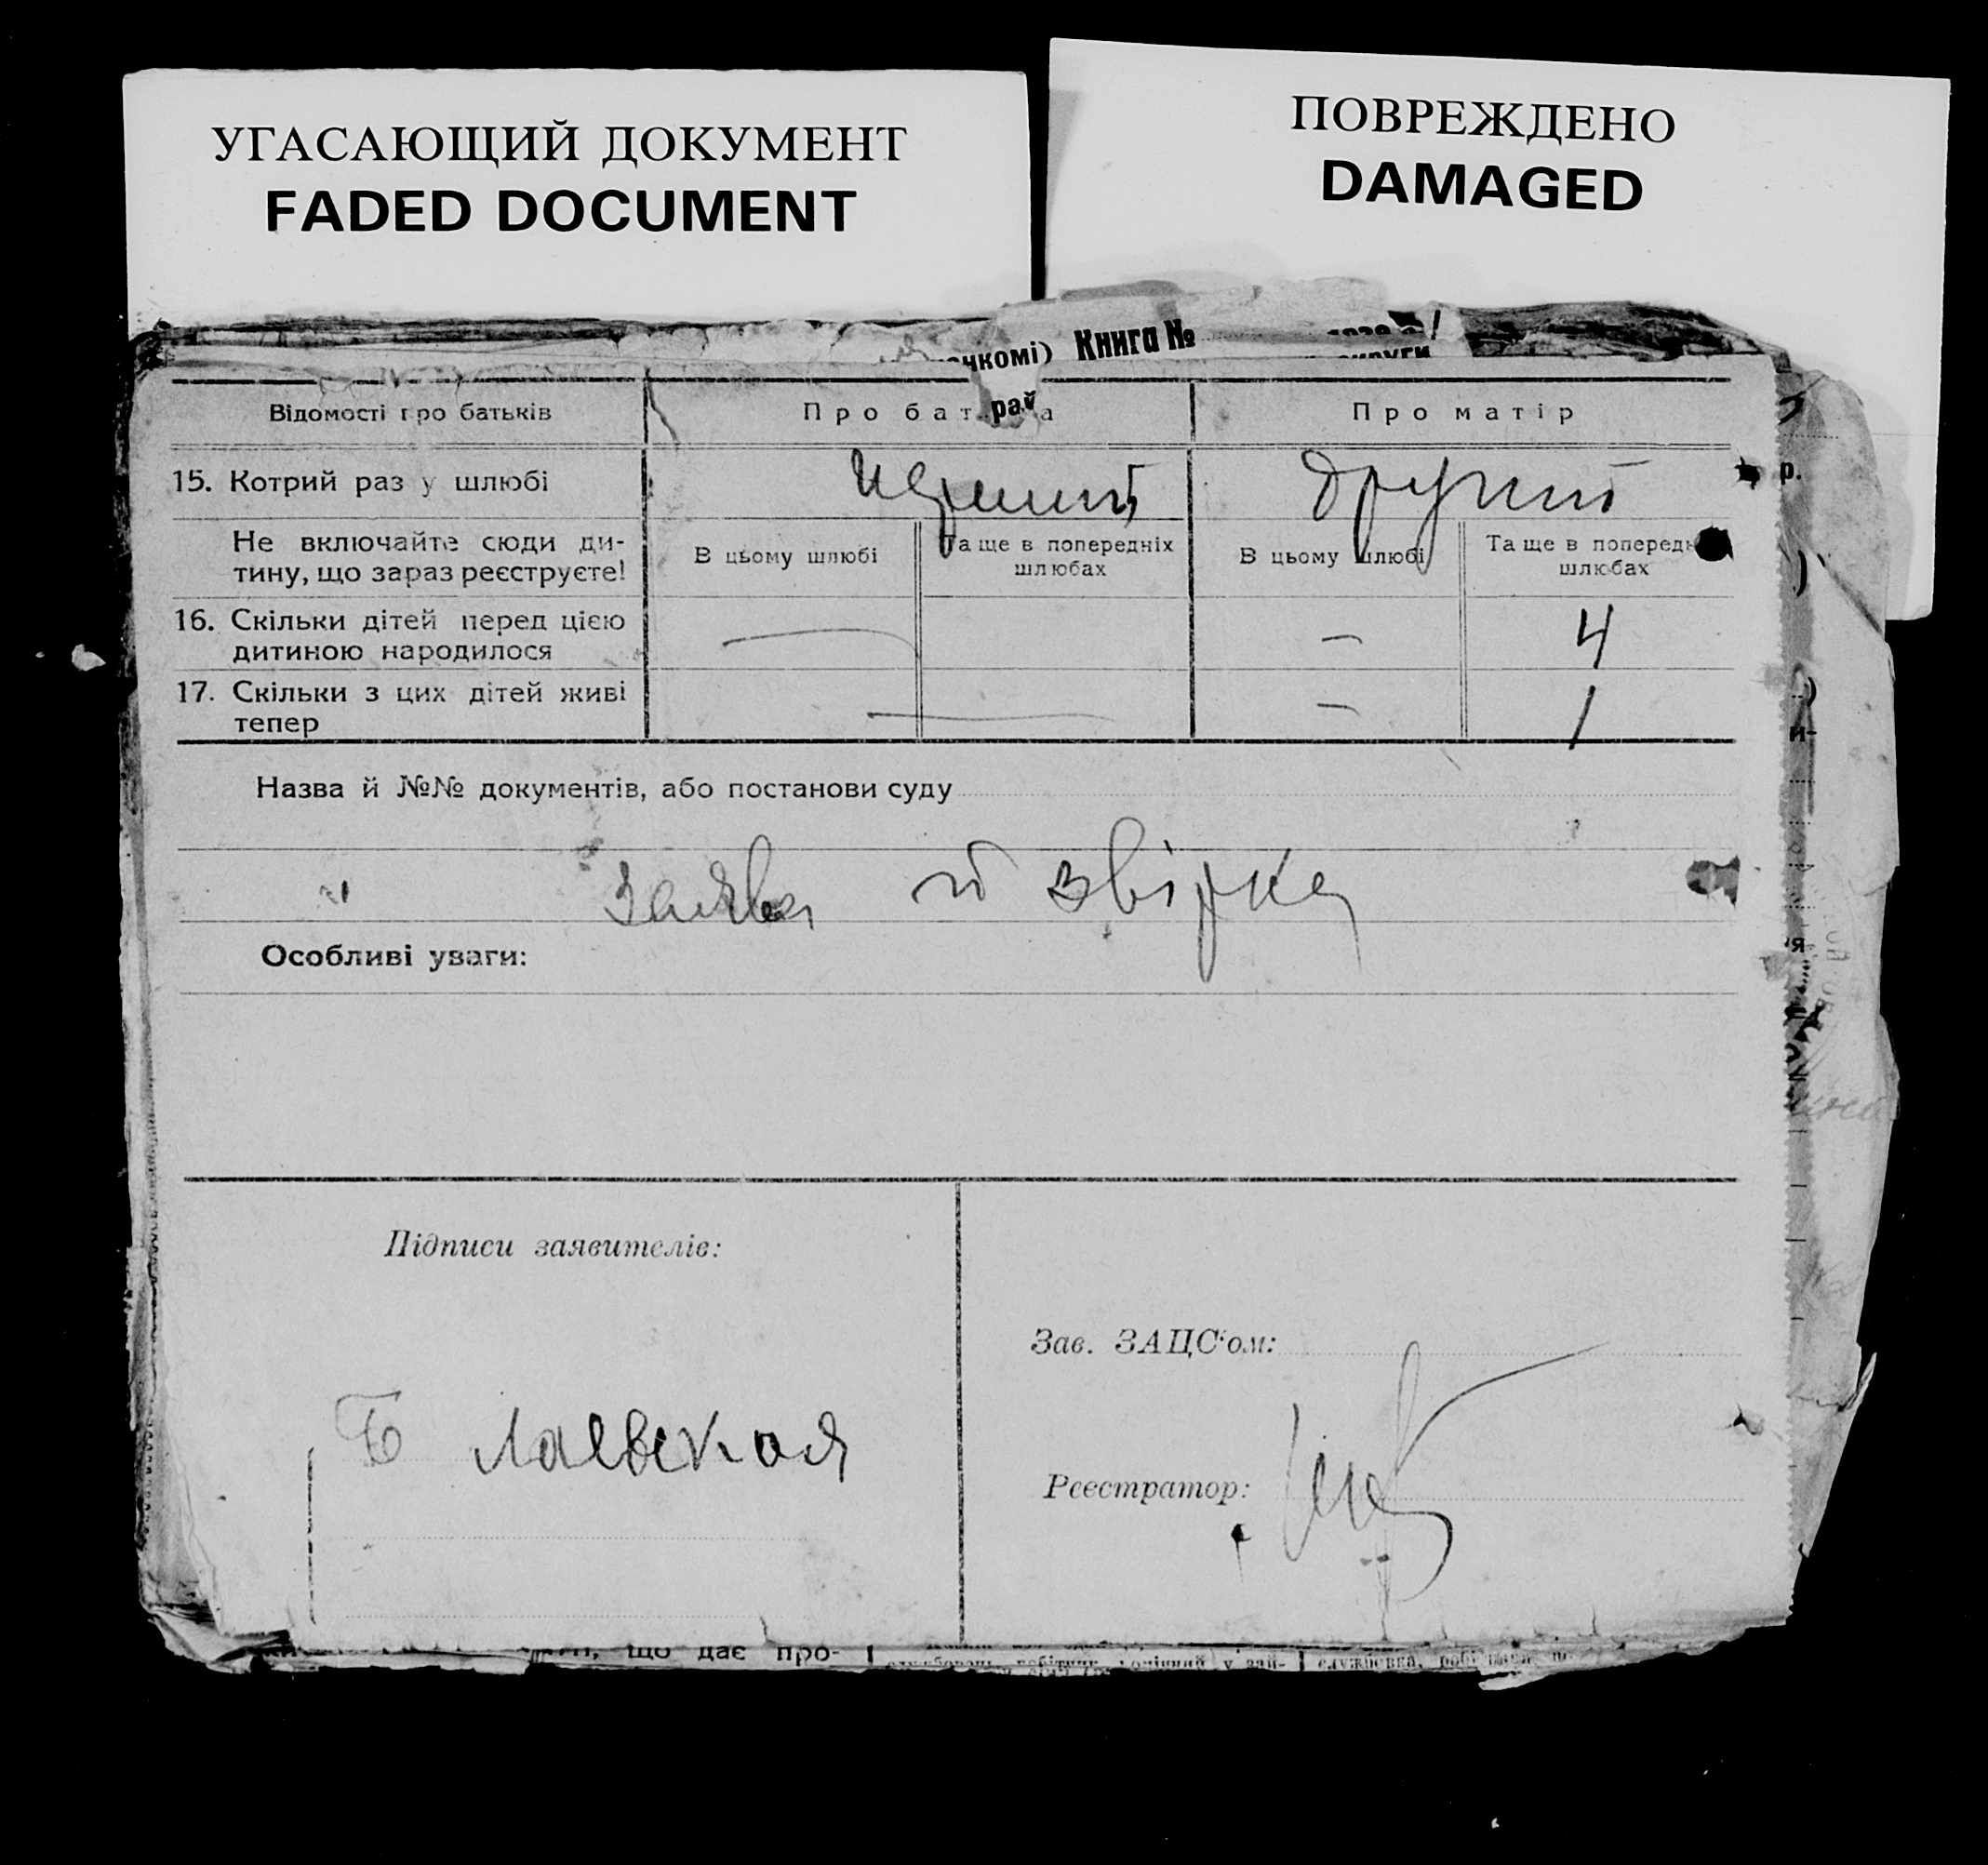 УГАСАЮЩИЙ ДОКУМЕНТ
FADED DOCUMENT
ПОВРЕЖДЕНО
DAMAGED
Книга №
Відомості про батьків
Про матір
15. Котрий раз у шлюбі
перший
другий
Не включайте сюди ди-
тину, що зараз реєструєте!
В цьому шлюбі
Та ще в попередніх
шлюбах
В цьому шлюбі
Та ще в
шлюбах
16. Скільки дітей перед цією
дитиною народилося
—
—
4
17. Скільки з цих дітей живі
тепер
—
—
1
Назва й №№ документів, або постанови суду
Заява й звірка
Особливі уваги:
Підписи заявителів:
Зав. ЗАЦС'ом:
Реєстратор:
що дає про-